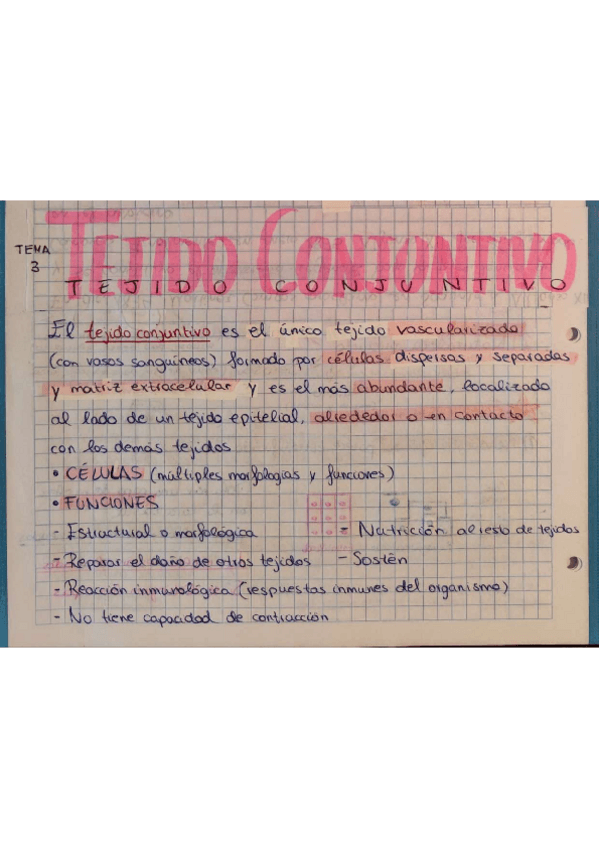 TEMA
3
TEJIDO CONJUNTIVO
TEJIDO CONJUNTIVO
El tejido conjuntivo es el único tejido vascularizado
(con vasos sanguíneos) formado por células dispersas y separadas
y matriz extracelular y es el más abundante, localizado
al lado de un tejido epitelial, alrededor o en contacto
con los demás tejidos
• CÉLULAS (múltiples morfologías y funciones)
• FUNCIONES
- Estructural o morfológica - Nutrición al resto de tejidos
- Reparar el daño de otros tejidos - Sostén
- Reacción inmunológica (respuestas inmunes del organismo)
- No tiene capacidad de contracción